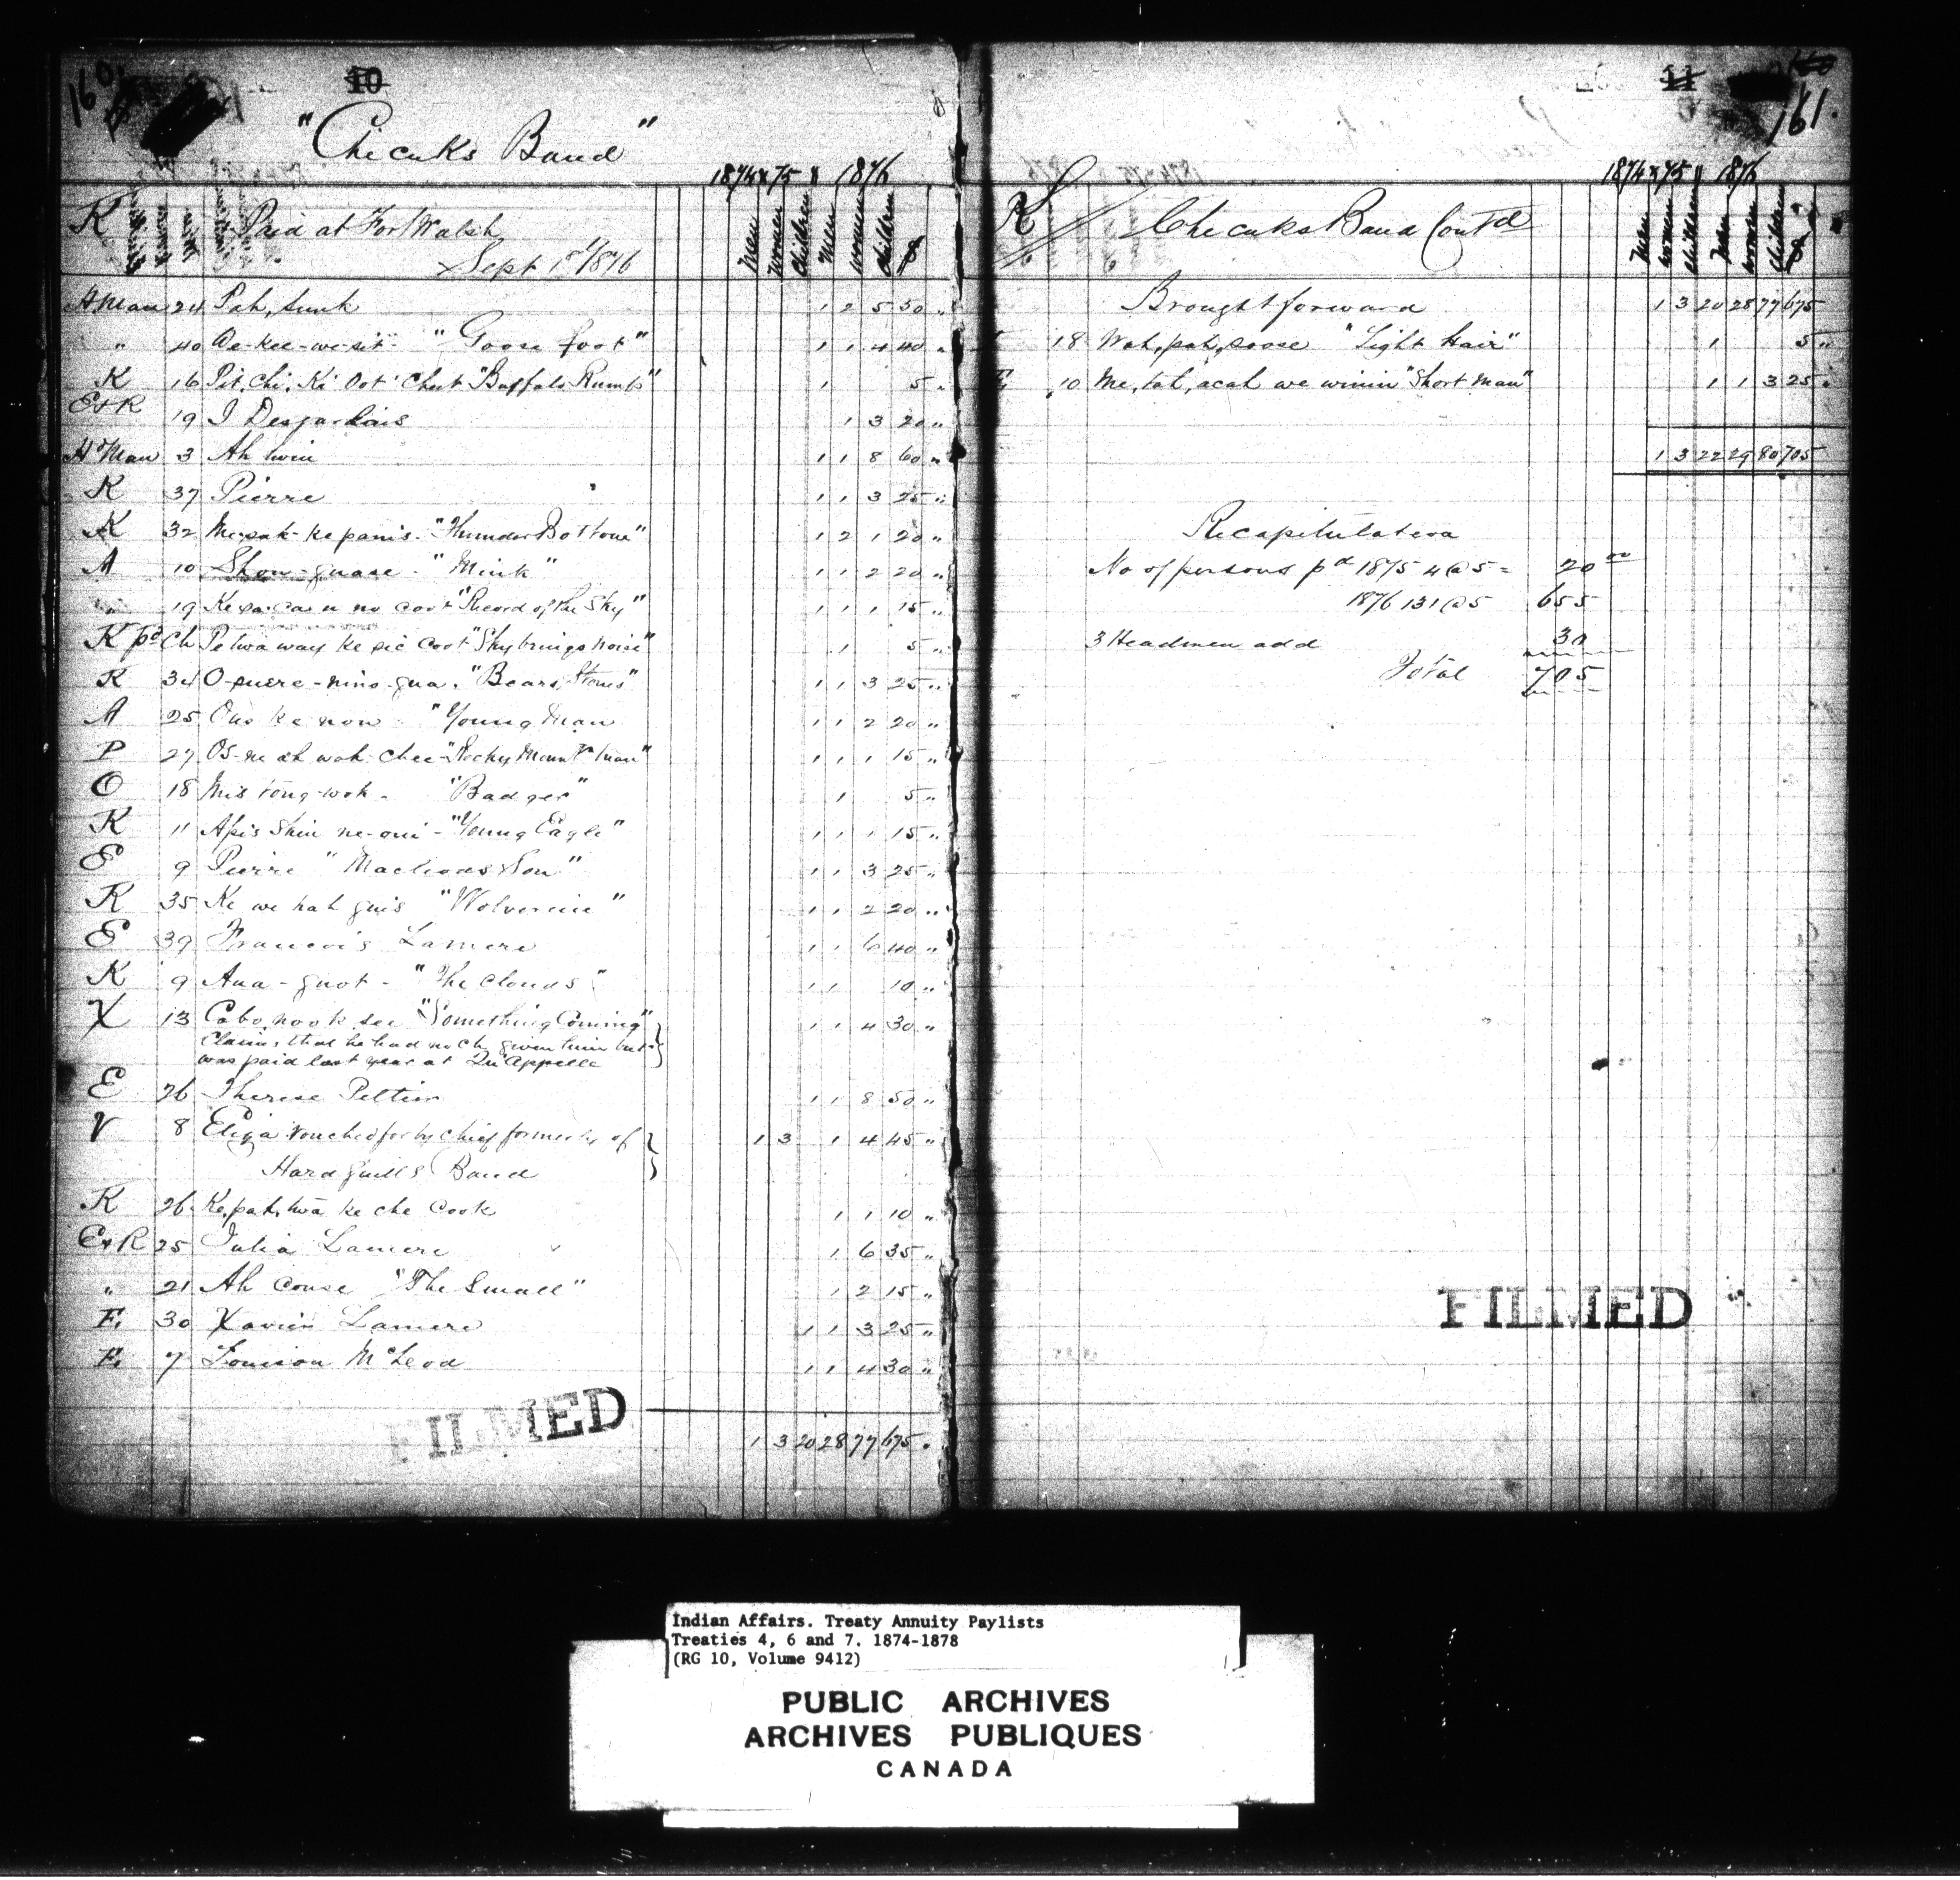 160
10
"Chicaks Band"
1874 x 75 " 1876
K Paid at Fort Walsh
Sept 1st 1876
Men Women Children Men Women Children $
H Man 24 Pah, sunk 1 2 5 50 "
" 40 "Goose foot" 1 1 4 40 "
K 16 Pit, Chi, Ki Oot Chut "Buffalo Rumb" 1 5 "
E+R 19 J Desjarlais 1 3 20 "
H Man 3 Ah twin 1 1 8 60 "
K 37 Pierre 1 1 3 25 "
K 32 "Thunder Bottom" 1 2 1 20 "
A 10 Show-guase - "Mink" 1 1 2 20 "
" 19 "Record of the Sky" 1 1 1 15 "
K pd Ch Petwa way ke sic coot "Sky brings noise" 1 5 "
K 34 "Bears Stones" 1 1 3 25 "
A 25 Ous ke non - "Young Man 1 1 2 20 "
P 27 Os-ne at wah-chee "Rocky Mount Man" 1 1 1 15 "
O 18 Mis tong-wok - "Badger" 1 5 "
K 11 Apis Shin ne-oui - "Young Eagle" 1 1 1 15 "
E 9 Pierre "Macleods Son" 1 1 3 25 "
K 35 Ke we hat guis "Wolverine" 1 1 2 20 "
E 39 Francois Lamere 1 1 6 40 "
K 9 Ana-quot - "The Clouds" 1 1 10 "
X 13 Cabo, nook see "Something Coming" 1 1 4 30 "
Claims that he had no ch given him but
was paid last year at Qu'Appelle
E 26 Therese Peltier 1 1 8 50 "
V 8 Eliza vouched for by chief formerly of 1 3 1 4 45 "
Hard Quills Band
K 26 Ke, pah, twa ke che Cook 1 1 10 "
E+R 25 Julia Lamere 1 6 35 "
" 21 Ah Couse "The Small" 1 2 15 "
E. 30 Xavier Lamere 1 1 3 25 "
E. 7 Louison McLeod 1 1 4 30 "
FILMED
1 3 20 28 77 675 "
11
161.
1874 x 75 " 1876
K Chicaks Band Contd
Men Women Children Men Women Children $
Brought forward 1 3 20 28 77 675
18 Wah, pah, soose "Light Hair" 1 5 "
E. 10 Me, tah, acah we winin "Short Man" 1 1 3 25 "
1 3 22 29 80 705
Recapitulation
No of persons pd 1875 4 @ 5 = 20 00
1876 131 @ 5 655
3 Headmen add 30
Total 705
FILMED
Indian Affairs. Treaty Annuity Paylists
Treaties 4, 6 and 7. 1874-1878
(RG 10, Volume 9412)
PUBLIC ARCHIVES
ARCHIVES PUBLIQUES
CANADA